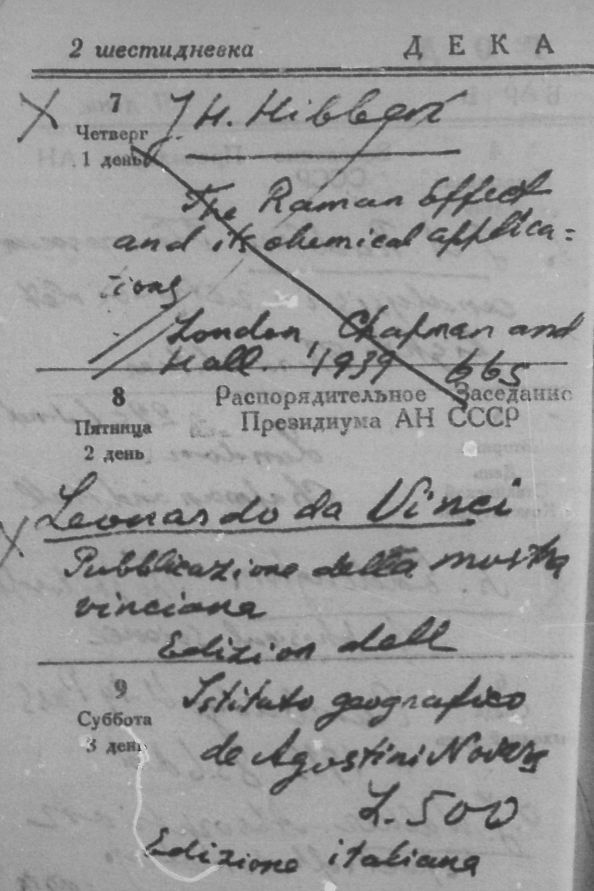 2 шестидневка ДЕКА
7
Четверг
1 день
J. H. Hibben
The Raman Effect
and its chemical applica=
tions
London, Chapman and
Hall. 1939 665
8
Пятница
2 день
Распорядительное Заседание
Президиума АН СССР
Leonardo da Vinci
Pubblicazione della mostra
vinciana
Edizion dell
9
Суббота
3 день
Istituto geografico
de Agostini Novara
L. 500
Edizione italiana